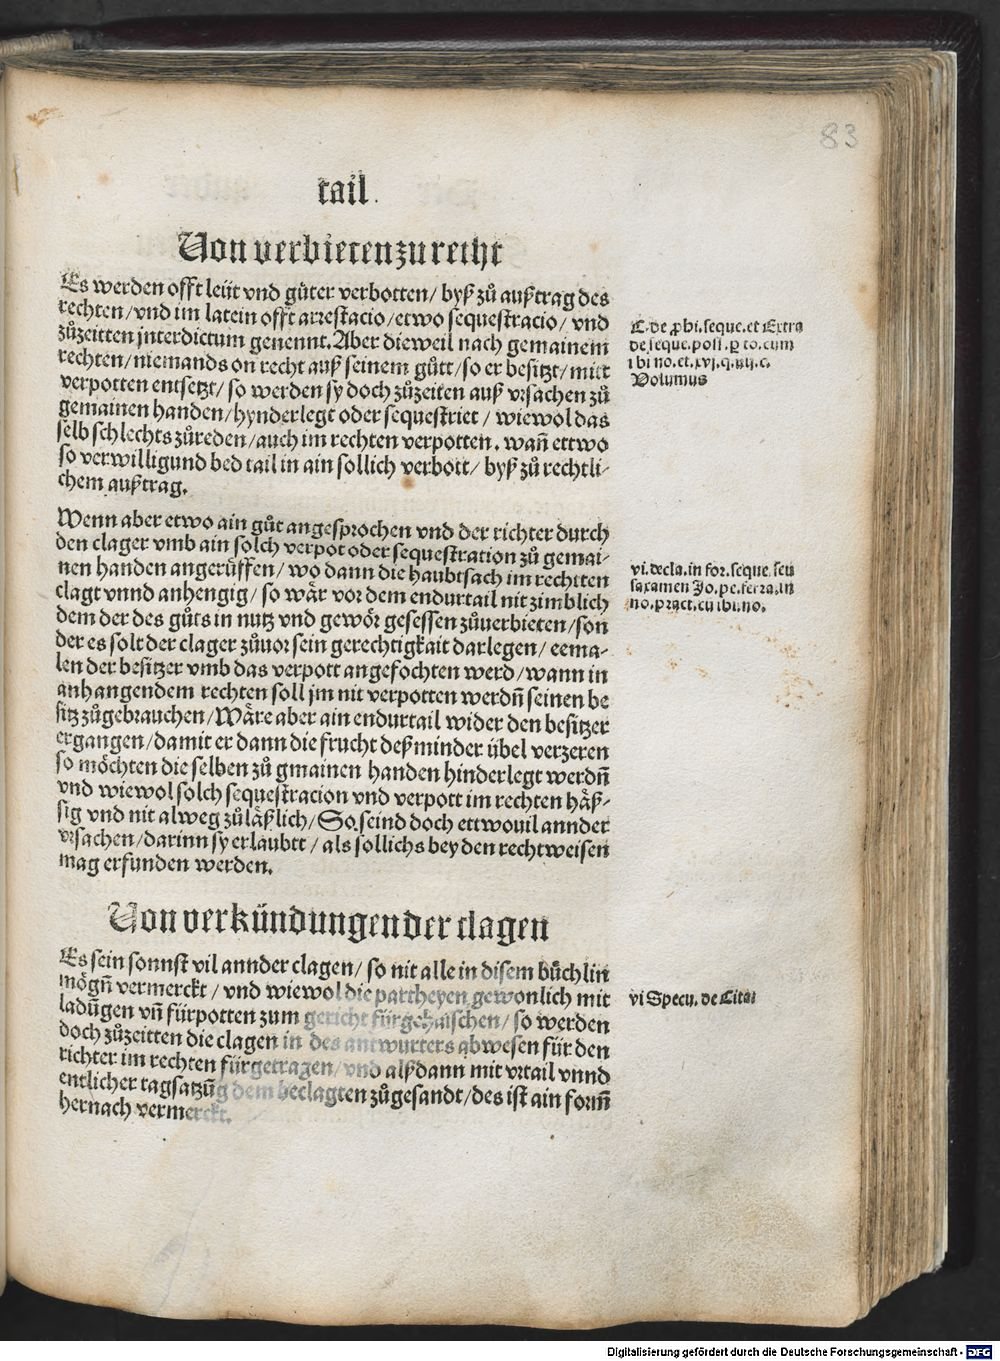 83
tail.
Von verbieten zu recht
Es werden offt leüt vnd gůter verbotten/ byß zů außtrag des
rechten/ vnd im latein offt arrestacio/ etwo sequestracio/ vnd
zůzeitten jnterdictum genennt. Aber dieweil nach gemainem
rechten/ niemands on recht auß seinem gůtt/ so er besitzt/ mitt
verpotten entsetzt/ so werden sy doch zůzeiten auß vrsachen zů
gemainen handen/ hynderlegt oder sequestriet/ wiewol das
selb schlechts zůreden/ auch im rechten verpotten. wañ ettwo
so verwilligund bed tail in ain sollich verbott/ byß zů rechtli-
chem außtrag.
C. de ꝓhi. seque. et Extra
de seque. poss. ꝑ to. cum
ibi no. et. xvj. q. iiij. c.
Volumus
Wenn aber etwo ain gůt angesprochen vnd der richter durch
den clager vmb ain solch verpot oder sequestration zů gemai-
nen handen angerůffen/ wo dann die haubtsach im rechten
clagt vnnd anhengig/ so wår vor dem endurtail nit zimblich
dem der des gůts in nutz vnd gewör gesessen zůuerbieten/ son
der es solt der clager zůuor sein gerechtigkait darlegen/ eema-
len der besitzer vmb das verpott angefochten werd/ wann in
anhangendem rechten soll jm nit verpotten werdñ seinen be
sitz zůgebrauchen/ Wåre aber ain endurtail wider den besitzer
ergangen/ damit er dann die frucht deß minder übel verzeren
so möchten die selben zů gmainen handen hinderlegt werdñ
vnd wiewol solch sequestracion vnd verpott im rechten håß-
sig vnd nit alweg zůläßlich/ So seind doch ettwouil annder
vrsachen/ darinn sy erlaubtt/ als sollichs bey den rechtweisen
mag erfunden werden.
vi. decla. in for. seque. seu
saxamen Jo. pe. ferra. in
no. pract. cū ibi. no.
Von verkündungen der clagen
Es sein sonnst vil annder clagen/ so nit alle in disem bůchlin
mögñ vermerckt/ vnd wiewol die partheyen gewonlich mit
ladūgen vñ fürpotten zum gericht fürgehaischen/ so werden
doch zůzeitten die clagen in des antwurters abwesen für den
richter im rechten fürgetragen/ vnd alßdann mit vrtail vnnd
entlicher tagsatzūg dem beclagten zůgesandt/ des ist ain formm̄
hernach vermerckt.
vi Specu. de Citai
Digitalisierung gefördert durch die Deutsche Forschungsgemeinschaft - DFG